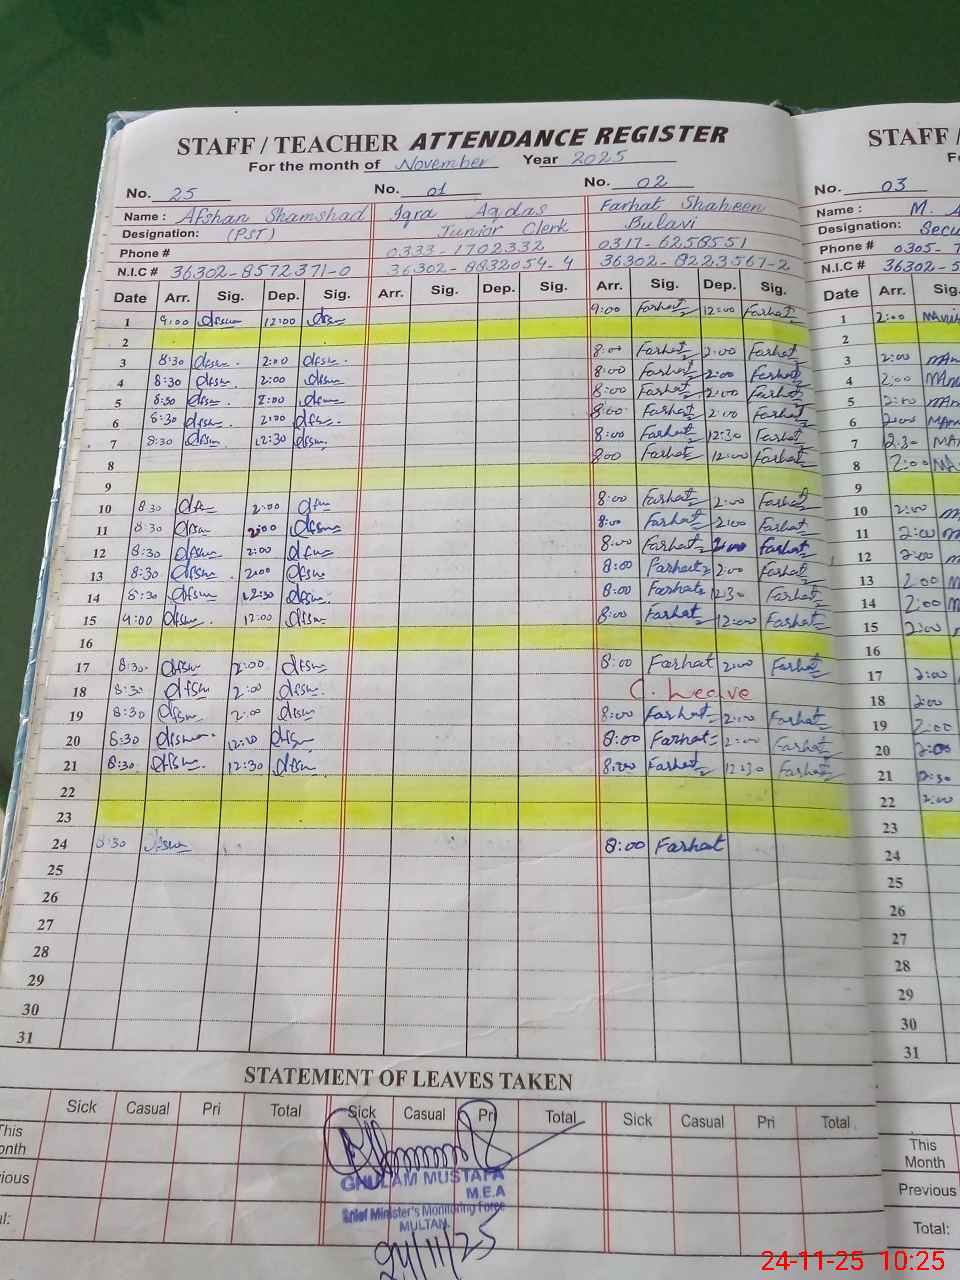 STAFF / TEACHER ATTENDANCE REGISTER
For the month of November Year 2025
No. 25 No. 01 No. 02
Name : Afshan Shamshad Iqra Aqdas Farhat Shaheen
Designation: (PST) Junior Clerk Bulavi
Phone # 0333-1702332 0317-6258551
N.I.C # 36302-8572371-0 36302-8832054-4 36302-8223567-2
Date Arr. Sig. Dep. Sig. Arr. Sig. Dep. Sig. Arr. Sig. Dep. Sig.
1 9:00 12:00 9:00 Farhat 12:00 Farhat
2
3 8:30 2:00 8:00 Farhat 2:00 Farhat
4 8:30 2:00 8:00 Farhat 2:00 Farhat
5 8:30 2:00 8:00 Farhat 2:00 Farhat
6 8:30 2:00 8:00 Farhat 2:00 Farhat
7 8:30 12:30 8:00 Farhat 12:30 Farhat
8 800 Farhat 12:00 Farhat
9
10 830 2:00 8:00 Farhat 2:00 Farhat
11 8:30 2:00 8:00 Farhat 2:00 Farhat
12 8:30 2:00 8:00 Farhat 2:00 Farhat
13 8:30 2:00 8:00 Farhat 2:00 Farhat
14 8:30 12:30 8:00 Farhat 1230 Farhat
15 9:00 12:00 8:00 Farhat 12:00 Farhat
16
17 8:30 2:00 8:00 Farhat 2:00 Farhat
18 8:30 2:00 C. Leave
19 8:30 2:00 8:00 Farhat 2:00 Farhat
20 8:30 8:00 Farhat 2:00 Farhat
21 8:30 12:30 8:00 Farhat 12:30 Farhat
22
23
24 8:30 8:00 Farhat
25
26
27
28
29
30
31
STATEMENT OF LEAVES TAKEN
Sick Casual Pri Total Sick Casual Pri Total Sick Casual Pri Total
This
onth
ious
al:
GHULAM MUSTAFA
M.E.A
Chief Minister's Monitoring Force
MULTAN.
24/11/25
STAFF /
No. 03
Name : M. A
Designation: Secu
Phone # 0305-7
N.I.C # 36302-5
Date Arr. Sig.
1 2:00
2
3 2:00
4 2:00
5 2:00
6 2:00
7 2:30
8 2:00
9
10 2:00
11 2:00
12 2:00
13 2:00
14 2:00
15 2:00
16
17 2:00
18 2:00
19 2:00
20 2:00
21 2:30
22 2:00
23
24
25
26
27
28
29
30
31
This
Month
Previous
Total:
24-11-25 10:25